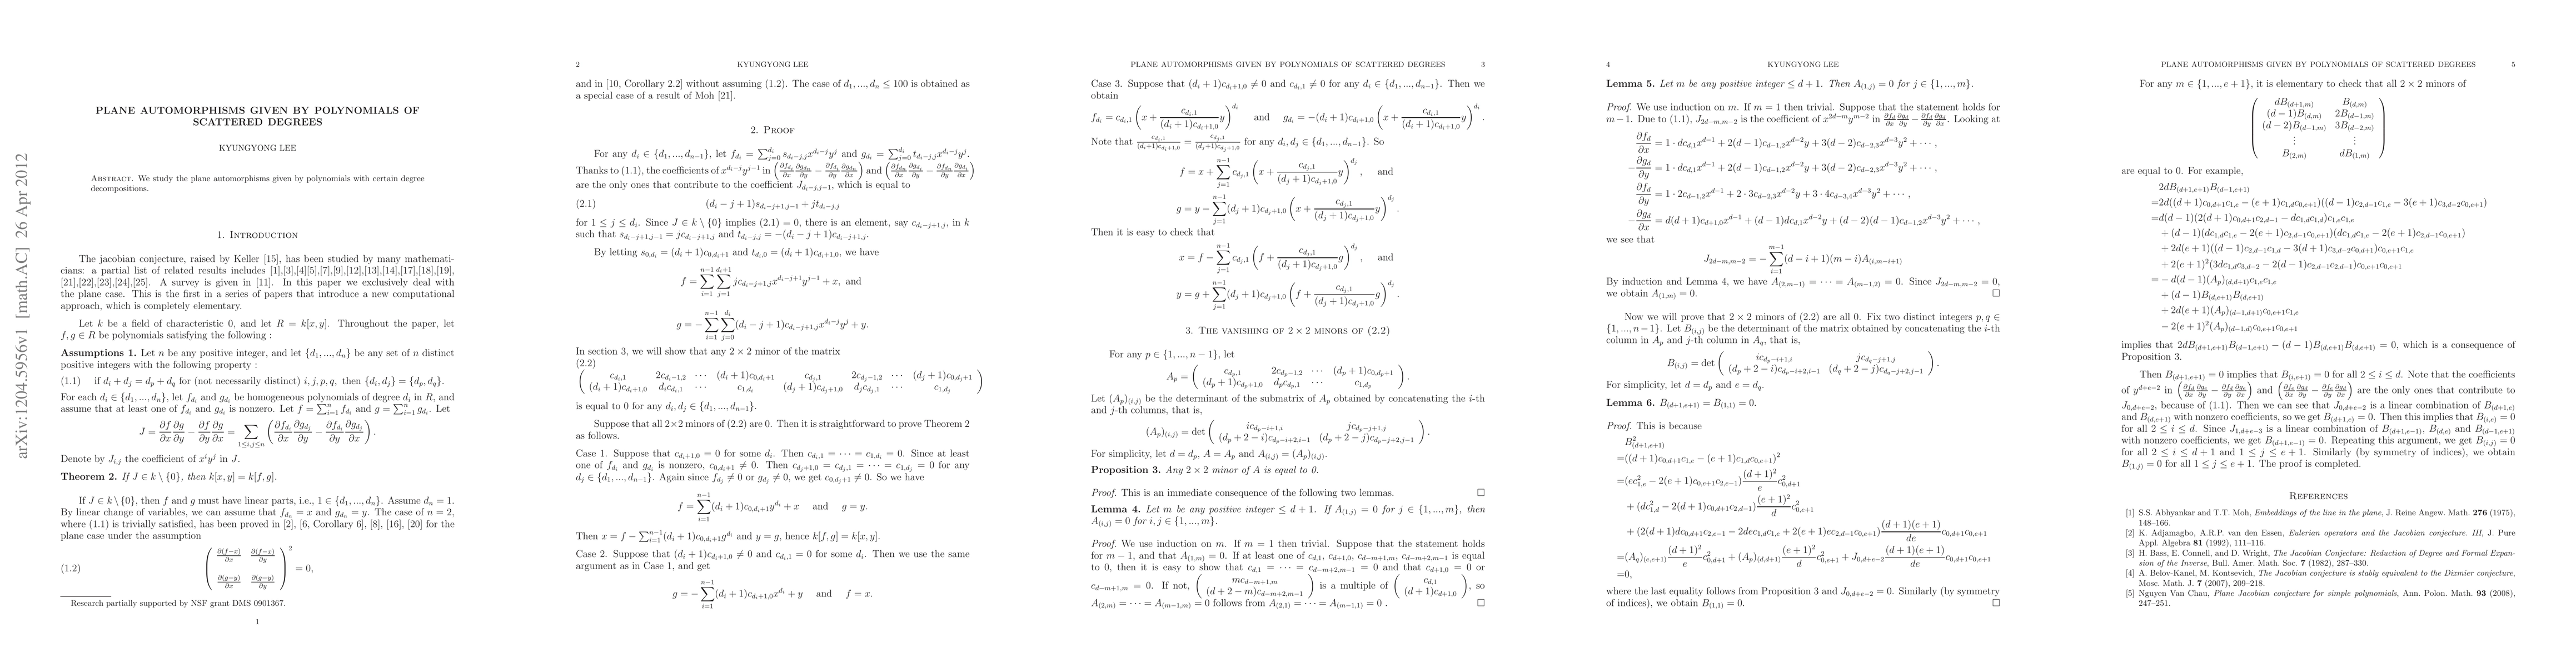 arXiv:1204.5956v1 [math.AC] 26 Apr 2012
PLANE AUTOMORPHISMS GIVEN BY POLYNOMIALS OF
SCATTERED DEGREES
KYUNGYONG LEE
ABSTRACT. We study the plane automorphisms given by polynomials with certain degree
decompositions.
1. INTRODUCTION
The jacobian conjecture, raised by Keller [15], has been studied by many mathemati-
cians: a partial list of related results includes [1],[3],[4][5],[7],[9],[12],[13],[14],[17],[18],[19],
[21],[22],[23],[24],[25]. A survey is given in [11]. In this paper we exclusively deal with
the plane case. This is the first in a series of papers that introduce a new computational
approach, which is completely elementary.
Let k be a field of characteristic 0, and let R = k[x, y]. Throughout the paper, let
f, g ∈ R be polynomials satisfying the following :
Assumptions 1. Let n be any positive integer, and let {d_1, ..., d_n} be any set of n distinct
positive integers with the following property :
(1.1) if d_i + d_j = d_p + d_q for (not necessarily distinct) i, j, p, q, then {d_i, d_j} = {d_p, d_q}.
For each d_i ∈ {d_1, ..., d_n}, let f_{d_i} and g_{d_i} be homogeneous polynomials of degree d_i in R, and
assume that at least one of f_{d_i} and g_{d_i} is nonzero. Let f = \sum_{i=1}^n f_{d_i} and g = \sum_{i=1}^n g_{d_i}. Let
J = \frac{∂f}{∂x}\frac{∂g}{∂y} − \frac{∂f}{∂y}\frac{∂g}{∂x} = \sum_{1≤i,j≤n} ( \frac{∂f_{d_i}}{∂x}\frac{∂g_{d_j}}{∂y} − \frac{∂f_{d_i}}{∂y}\frac{∂g_{d_j}}{∂x} ).
Denote by J_{i,j} the coefficient of x^i y^j in J.
Theorem 2. If J ∈ k \ {0}, then k[x, y] = k[f, g].
If J ∈ k \ {0}, then f and g must have linear parts, i.e., 1 ∈ {d_1, ..., d_n}. Assume d_n = 1.
By linear change of variables, we can assume that f_{d_n} = x and g_{d_n} = y. The case of n = 2,
where (1.1) is trivially satisfied, has been proved in [2], [6, Corollary 6], [8], [16], [20] for the
plane case under the assumption
(1.2) ( \frac{∂(f−x)}{∂x} \frac{∂(f−x)}{∂y} ; \frac{∂(g−y)}{∂x} \frac{∂(g−y)}{∂y} )^2 = 0,
Research partially supported by NSF grant DMS 0901367.
1
2 KYUNGYONG LEE
and in [10, Corollary 2.2] without assuming (1.2). The case of d_1, ..., d_n ≤ 100 is obtained as
a special case of a result of Moh [21].
2. PROOF
For any d_i ∈ {d_1, ..., d_{n−1}}, let f_{d_i} = \sum_{j=0}^{d_i} s_{d_i−j,j}x^{d_i−j}y^j and g_{d_i} = \sum_{j=0}^{d_i} t_{d_i−j,j}x^{d_i−j}y^j.
Thanks to (1.1), the coefficients of x^{d_i−j}y^{j−1} in ( \frac{∂f_{d_i}}{∂x}\frac{∂g_{d_n}}{∂y} − \frac{∂f_{d_i}}{∂y}\frac{∂g_{d_n}}{∂x} ) and ( \frac{∂f_{d_n}}{∂x}\frac{∂g_{d_i}}{∂y} − \frac{∂f_{d_n}}{∂y}\frac{∂g_{d_i}}{∂x} )
are the only ones that contribute to the coefficient J_{d_i−j,j−1}, which is equal to
(2.1) (d_i − j + 1)s_{d_i−j+1,j−1} + jt_{d_i−j,j}
for 1 ≤ j ≤ d_i. Since J ∈ k \ {0} implies (2.1) = 0, there is an element, say c_{d_i−j+1,j}, in k
such that s_{d_i−j+1,j−1} = jc_{d_i−j+1,j} and t_{d_i−j,j} = −(d_i − j + 1)c_{d_i−j+1,j}.
By letting s_{0,d_i} = (d_i + 1)c_{0,d_i+1} and t_{d_i,0} = (d_i + 1)c_{d_i+1,0}, we have
f = \sum_{i=1}^{n−1} \sum_{j=1}^{d_i+1} jc_{d_i−j+1,j}x^{d_i−j+1}y^{j−1} + x, and
g = − \sum_{i=1}^{n−1} \sum_{j=0}^{d_i} (d_i − j + 1)c_{d_i−j+1,j}x^{d_i−j}y^j + y.
In section 3, we will show that any 2 × 2 minor of the matrix
(2.2)
( c_{d_i,1} 2c_{d_i−1,2} ⋯ (d_i + 1)c_{0,d_i+1} c_{d_j,1} 2c_{d_j−1,2} ⋯ (d_j + 1)c_{0,d_j+1}
(d_i + 1)c_{d_i+1,0} d_ic_{d_i,1} ⋯ c_{1,d_i} (d_j + 1)c_{d_j+1,0} d_jc_{d_j,1} ⋯ c_{1,d_j} )
is equal to 0 for any d_i, d_j ∈ {d_1, ..., d_{n−1}}.
Suppose that all 2×2 minors of (2.2) are 0. Then it is straightforward to prove Theorem 2
as follows.
Case 1. Suppose that c_{d_i+1,0} = 0 for some d_i. Then c_{d_i,1} = ⋯ = c_{1,d_i} = 0. Since at least
one of f_{d_i} and g_{d_i} is nonzero, c_{0,d_i+1} ≠ 0. Then c_{d_j+1,0} = c_{d_j,1} = ⋯ = c_{1,d_j} = 0 for any
d_j ∈ {d_1, ..., d_{n−1}}. Again since f_{d_j} ≠ 0 or g_{d_j} ≠ 0, we get c_{0,d_j+1} ≠ 0. So we have
f = \sum_{i=1}^{n−1} (d_i + 1)c_{0,d_i+1}y^{d_i} + x and g = y.
Then x = f − \sum_{i=1}^{n−1}(d_i + 1)c_{0,d_i+1}g^{d_i} and y = g, hence k[f, g] = k[x, y].
Case 2. Suppose that (d_i + 1)c_{d_i+1,0} ≠ 0 and c_{d_i,1} = 0 for some d_i. Then we use the same
argument as in Case 1, and get
g = − \sum_{i=1}^{n−1} (d_i + 1)c_{d_i+1,0}x^{d_i} + y and f = x.
PLANE AUTOMORPHISMS GIVEN BY POLYNOMIALS OF SCATTERED DEGREES 3
Case 3. Suppose that (d_i + 1)c_{d_i+1,0} ≠ 0 and c_{d_i,1} ≠ 0 for any d_i ∈ {d_1, ..., d_{n−1}}. Then we
obtain
f_{d_i} = c_{d_i,1} ( x + \frac{c_{d_i,1}}{(d_i + 1)c_{d_i+1,0}} y )^{d_i} and g_{d_i} = −(d_i + 1)c_{d_i+1,0} ( x + \frac{c_{d_i,1}}{(d_i + 1)c_{d_i+1,0}} y )^{d_i}.
Note that \frac{c_{d_i,1}}{(d_i+1)c_{d_i+1,0}} = \frac{c_{d_j,1}}{(d_j+1)c_{d_j+1,0}} for any d_i, d_j ∈ {d_1, ..., d_{n−1}}. So
f = x + \sum_{j=1}^{n−1} c_{d_j,1} ( x + \frac{c_{d_j,1}}{(d_j + 1)c_{d_j+1,0}} y )^{d_j}, and
g = y − \sum_{j=1}^{n−1} (d_j + 1)c_{d_j+1,0} ( x + \frac{c_{d_j,1}}{(d_j + 1)c_{d_j+1,0}} y )^{d_j}.
Then it is easy to check that
x = f − \sum_{j=1}^{n−1} c_{d_j,1} ( f + \frac{c_{d_j,1}}{(d_j + 1)c_{d_j+1,0}} g )^{d_j}, and
y = g + \sum_{j=1}^{n−1} (d_j + 1)c_{d_j+1,0} ( f + \frac{c_{d_j,1}}{(d_j + 1)c_{d_j+1,0}} g )^{d_j}.
3. THE VANISHING OF 2 × 2 MINORS OF (2.2)
For any p ∈ {1, ..., n − 1}, let
A_p = ( c_{d_p,1} 2c_{d_p−1,2} ⋯ (d_p + 1)c_{0,d_p+1}
(d_p + 1)c_{d_p+1,0} d_pc_{d_p,1} ⋯ c_{1,d_p} ).
Let (A_p)_{(i,j)} be the determinant of the submatrix of A_p obtained by concatenating the i-th
and j-th columns, that is,
(A_p)_{(i,j)} = det ( ic_{d_p−i+1,i} jc_{d_p−j+1,j}
(d_p + 2 − i)c_{d_p−i+2,i−1} (d_p + 2 − j)c_{d_p−j+2,j−1} ).
For simplicity, let d = d_p, A = A_p and A_{(i,j)} = (A_p)_{(i,j)}.
Proposition 3. Any 2 × 2 minor of A is equal to 0.
Proof. This is an immediate consequence of the following two lemmas. □
Lemma 4. Let m be any positive integer ≤ d + 1. If A_{(1,j)} = 0 for j ∈ {1, ..., m}, then
A_{(i,j)} = 0 for i, j ∈ {1, ..., m}.
Proof. We use induction on m. If m = 1 then trivial. Suppose that the statement holds
for m − 1, and that A_{(1,m)} = 0. If at least one of c_{d,1}, c_{d+1,0}, c_{d−m+1,m}, c_{d−m+2,m−1} is equal
to 0, then it is easy to show that c_{d,1} = ⋯ = c_{d−m+2,m−1} = 0 and that c_{d+1,0} = 0 or
c_{d−m+1,m} = 0. If not, ( mc_{d−m+1,m} ; (d + 2 − m)c_{d−m+2,m−1} ) is a multiple of ( c_{d,1} ; (d + 1)c_{d+1,0} ), so
A_{(2,m)} = ⋯ = A_{(m−1,m)} = 0 follows from A_{(2,1)} = ⋯ = A_{(m−1,1)} = 0 . □
4 KYUNGYONG LEE
Lemma 5. Let m be any positive integer ≤ d + 1. Then A_{(1,j)} = 0 for j ∈ {1, ..., m}.
Proof. We use induction on m. If m = 1 then trivial. Suppose that the statement holds for
m − 1. Due to (1.1), J_{2d−m,m−2} is the coefficient of x^{2d−m}y^{m−2} in \frac{∂f_d}{∂x}\frac{∂g_d}{∂y} − \frac{∂f_d}{∂y}\frac{∂g_d}{∂x}. Looking at
\frac{∂f_d}{∂x} = 1 · dc_{d,1}x^{d−1} + 2(d − 1)c_{d−1,2}x^{d−2}y + 3(d − 2)c_{d−2,3}x^{d−3}y^2 + ⋯ ,
−\frac{∂g_d}{∂y} = 1 · dc_{d,1}x^{d−1} + 2(d − 1)c_{d−1,2}x^{d−2}y + 3(d − 2)c_{d−2,3}x^{d−3}y^2 + ⋯ ,
\frac{∂f_d}{∂y} = 1 · 2c_{d−1,2}x^{d−1} + 2 · 3c_{d−2,3}x^{d−2}y + 3 · 4c_{d−3,4}x^{d−3}y^2 + ⋯ ,
−\frac{∂g_d}{∂x} = d(d + 1)c_{d+1,0}x^{d−1} + (d − 1)dc_{d,1}x^{d−2}y + (d − 2)(d − 1)c_{d−1,2}x^{d−3}y^2 + ⋯ ,
we see that
J_{2d−m,m−2} = − \sum_{i=1}^{m−1} (d − i + 1)(m − i)A_{(i,m−i+1)}
By induction and Lemma 4, we have A_{(2,m−1)} = ⋯ = A_{(m−1,2)} = 0. Since J_{2d−m,m−2} = 0,
we obtain A_{(1,m)} = 0. □
Now we will prove that 2 × 2 minors of (2.2) are all 0. Fix two distinct integers p, q ∈
{1, ..., n−1}. Let B_{(i,j)} be the determinant of the matrix obtained by concatenating the i-th
column in A_p and j-th column in A_q, that is,
B_{(i,j)} = det ( ic_{d_p−i+1,i} jc_{d_q−j+1,j}
(d_p + 2 − i)c_{d_p−i+2,i−1} (d_q + 2 − j)c_{d_q−j+2,j−1} ).
For simplicity, let d = d_p and e = d_q.
Lemma 6. B_{(d+1,e+1)} = B_{(1,1)} = 0.
Proof. This is because
B^2_{(d+1,e+1)}
=((d + 1)c_{0,d+1}c_{1,e} − (e + 1)c_{1,d}c_{0,e+1})^2
=(ec^2_{1,e} − 2(e + 1)c_{0,e+1}c_{2,e−1})\frac{(d + 1)^2}{e}c^2_{0,d+1}
+ (dc^2_{1,d} − 2(d + 1)c_{0,d+1}c_{2,d−1})\frac{(e + 1)^2}{d}c^2_{0,e+1}
+ (2(d + 1)dc_{0,d+1}c_{2,e−1} − 2dec_{1,d}c_{1,e} + 2(e + 1)ec_{2,d−1}c_{0,e+1})\frac{(d + 1)(e + 1)}{de}c_{0,d+1}c_{0,e+1}
=(A_q)_{(e,e+1)}\frac{(d + 1)^2}{e}c^2_{0,d+1} + (A_p)_{(d,d+1)}\frac{(e + 1)^2}{d}c^2_{0,e+1} + J_{0,d+e−2}\frac{(d + 1)(e + 1)}{de}c_{0,d+1}c_{0,e+1}
=0,
where the last equality follows from Proposition 3 and J_{0,d+e−2} = 0. Similarly (by symmetry
of indices), we obtain B_{(1,1)} = 0. □
PLANE AUTOMORPHISMS GIVEN BY POLYNOMIALS OF SCATTERED DEGREES 5
For any m ∈ {1, ..., e + 1}, it is elementary to check that all 2 × 2 minors of
( dB_{(d+1,m)} B_{(d,m)}
(d − 1)B_{(d,m)} 2B_{(d−1,m)}
(d − 2)B_{(d−1,m)} 3B_{(d−2,m)}
⋮ ⋮
B_{(2,m)} dB_{(1,m)} )
are equal to 0. For example,
2dB_{(d+1,e+1)}B_{(d−1,e+1)}
=2d((d + 1)c_{0,d+1}c_{1,e} − (e + 1)c_{1,d}c_{0,e+1})((d − 1)c_{2,d−1}c_{1,e} − 3(e + 1)c_{3,d−2}c_{0,e+1})
=d(d − 1)(2(d + 1)c_{0,d+1}c_{2,d−1} − dc_{1,d}c_{1,d})c_{1,e}c_{1,e}
+ (d − 1)(dc_{1,d}c_{1,e} − 2(e + 1)c_{2,d−1}c_{0,e+1})(dc_{1,d}c_{1,e} − 2(e + 1)c_{2,d−1}c_{0,e+1})
+ 2d(e + 1)((d − 1)c_{2,d−1}c_{1,d} − 3(d + 1)c_{3,d−2}c_{0,d+1})c_{0,e+1}c_{1,e}
+ 2(e + 1)^2(3dc_{1,d}c_{3,d−2} − 2(d − 1)c_{2,d−1}c_{2,d−1})c_{0,e+1}c_{0,e+1}
= − d(d − 1)(A_p)_{(d,d+1)}c_{1,e}c_{1,e}
+ (d − 1)B_{(d,e+1)}B_{(d,e+1)}
+ 2d(e + 1)(A_p)_{(d−1,d+1)}c_{0,e+1}c_{1,e}
− 2(e + 1)^2(A_p)_{(d−1,d)}c_{0,e+1}c_{0,e+1}
implies that 2dB_{(d+1,e+1)}B_{(d−1,e+1)} − (d − 1)B_{(d,e+1)}B_{(d,e+1)} = 0, which is a consequence of
Proposition 3.
Then B_{(d+1,e+1)} = 0 implies that B_{(i,e+1)} = 0 for all 2 ≤ i ≤ d. Note that the coefficients
of y^{d+e−2} in ( \frac{∂f_d}{∂x}\frac{∂g_e}{∂y} − \frac{∂f_d}{∂y}\frac{∂g_e}{∂x} ) and ( \frac{∂f_e}{∂x}\frac{∂g_d}{∂y} − \frac{∂f_e}{∂y}\frac{∂g_d}{∂x} ) are the only ones that contribute to
J_{0,d+e−2}, because of (1.1). Then we can see that J_{0,d+e−2} is a linear combination of B_{(d+1,e)}
and B_{(d,e+1)} with nonzero coefficients, so we get B_{(d+1,e)} = 0. Then this implies that B_{(i,e)} = 0
for all 2 ≤ i ≤ d. Since J_{1,d+e−3} is a linear combination of B_{(d+1,e−1)}, B_{(d,e)} and B_{(d−1,e+1)}
with nonzero coefficients, we get B_{(d+1,e−1)} = 0. Repeating this argument, we get B_{(i,j)} = 0
for all 2 ≤ i ≤ d + 1 and 1 ≤ j ≤ e + 1. Similarly (by symmetry of indices), we obtain
B_{(1,j)} = 0 for all 1 ≤ j ≤ e + 1. The proof is completed.
REFERENCES
[1] S.S. Abhyankar and T.T. Moh, Embeddings of the line in the plane, J. Reine Angew. Math. 276 (1975),
148–166.
[2] K. Adjamagbo, A.R.P. van den Essen, Eulerian operators and the Jacobian conjecture. III, J. Pure
Appl. Algebra 81 (1992), 111–116.
[3] H. Bass, E. Connell, and D. Wright, The Jacobian Conjecture: Reduction of Degree and Formal Expan-
sion of the Inverse, Bull. Amer. Math. Soc. 7 (1982), 287–330.
[4] A. Belov-Kanel, M. Kontsevich, The Jacobian conjecture is stably equivalent to the Dixmier conjecture,
Mosc. Math. J. 7 (2007), 209–218.
[5] Nguyen Van Chau, Plane Jacobian conjecture for simple polynomials, Ann. Polon. Math. 93 (2008),
247–251.